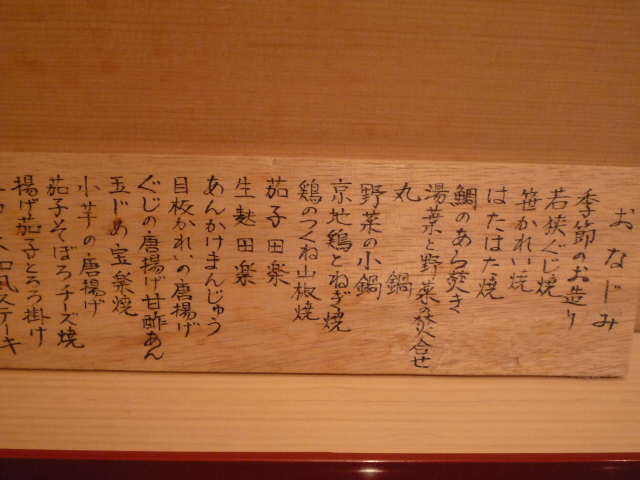 おなじみ
季節のお造り
若狭ぐじ焼
笹かれい焼
はたはた焼
鯛のあら焚き
湯葉と野菜の焚合せ
丸鍋
野菜の小鍋
京地鶏とねぎ焼
鶏のつくね山椒焼
茄子田楽
生麩田楽
あんかけまんじゅう
目板かれいの唐揚げ
ぐじの唐揚げ甘酢あん
玉じめ宝楽焼
小芋の唐揚げ
茄子そぼろチーズ焼
揚げ茄子とろろ掛け
和風ステーキ